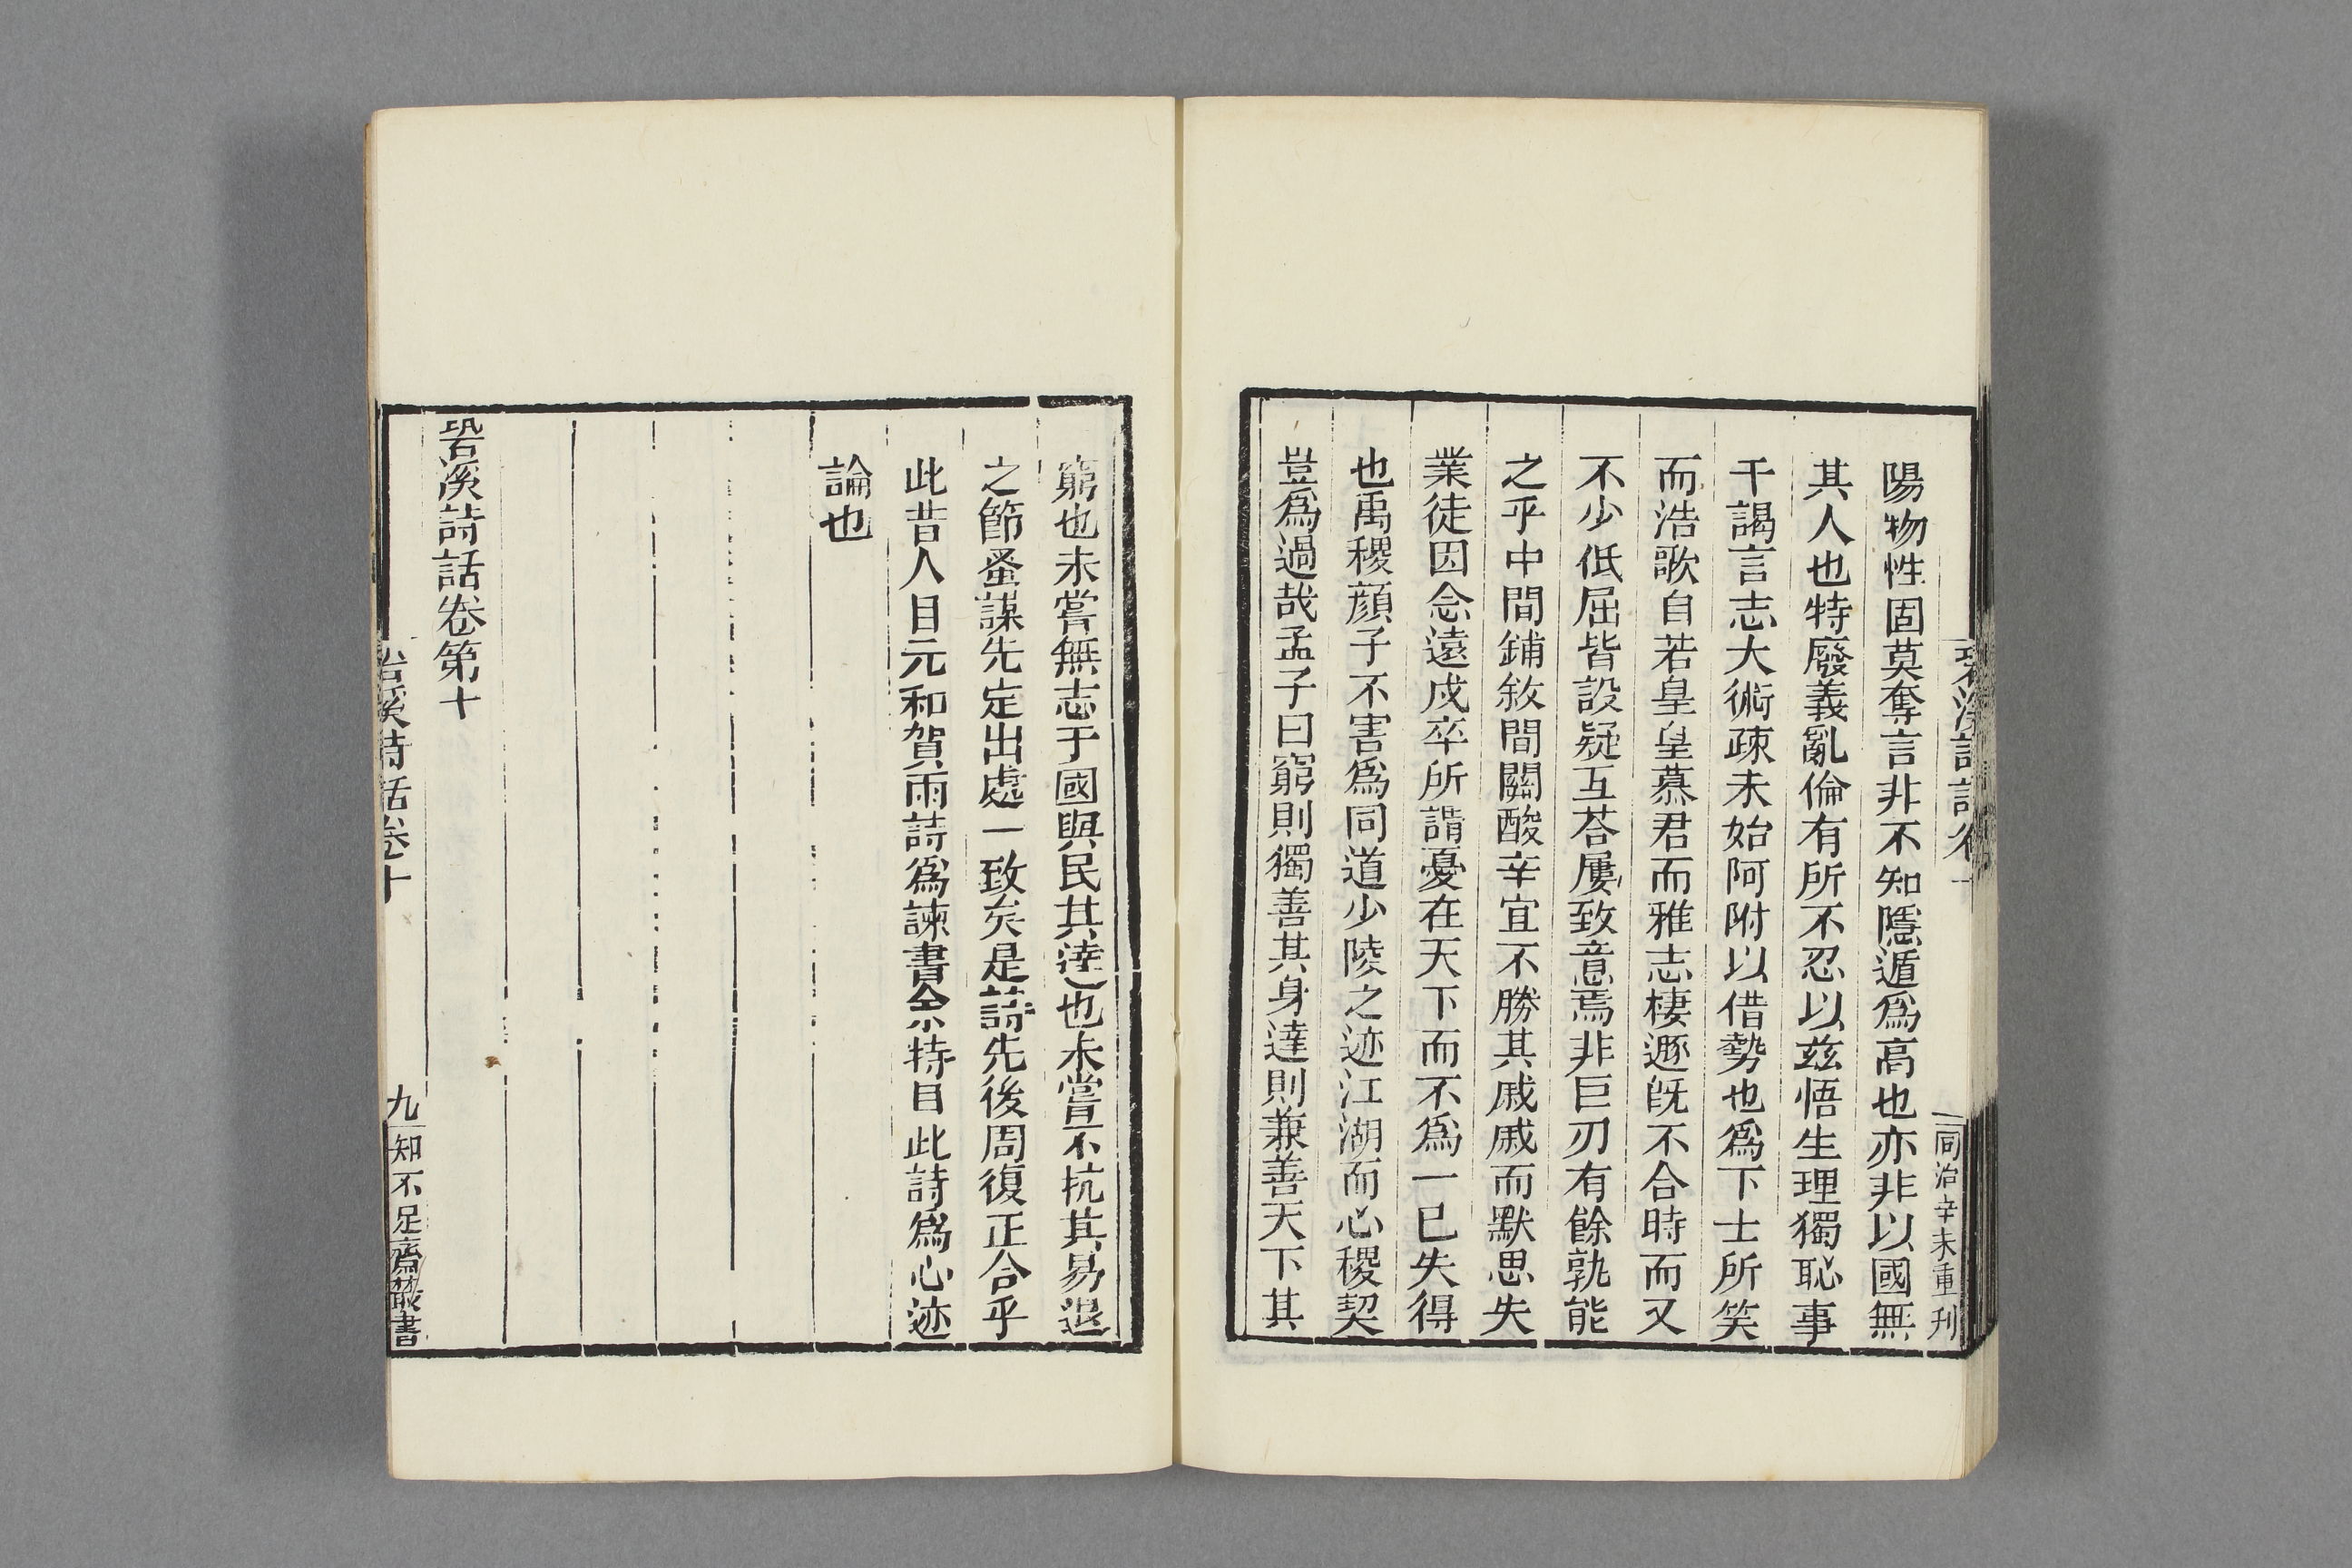 同治辛未重刊
陽物性固莫奪言非不知隱遁爲高也亦非以國無
其人也特廢義亂倫有所不忍以兹悟生理獨恥事
干謁言志大術疎未始阿附以借勢也爲下士所笑
而浩歌自若皇皇慕君而雅志棲遯旣不合時而又
不少低屈皆設疑互荅屢致意焉非巨刃有餘孰能
之乎中間鋪敘間關酸辛宜不勝其戚戚而默思失
業徒因念遠戍卒所謂憂在天下而不爲一已失得
也禹稷顔子不害爲同道少陵之迹江湖而心稷契
豈爲過哉孟子曰窮則獨善其身達則兼善天下其
窮也未嘗無志于國與民其達也未嘗不抗其易退
之節蚤謀先定出處一致矣是詩先後周復正合乎
此昔人目元和賀雨詩爲諫書余特目此詩爲心迹
論也
䂬溪詩話卷第十
溪詩話卷十
九
知不足齋叢書